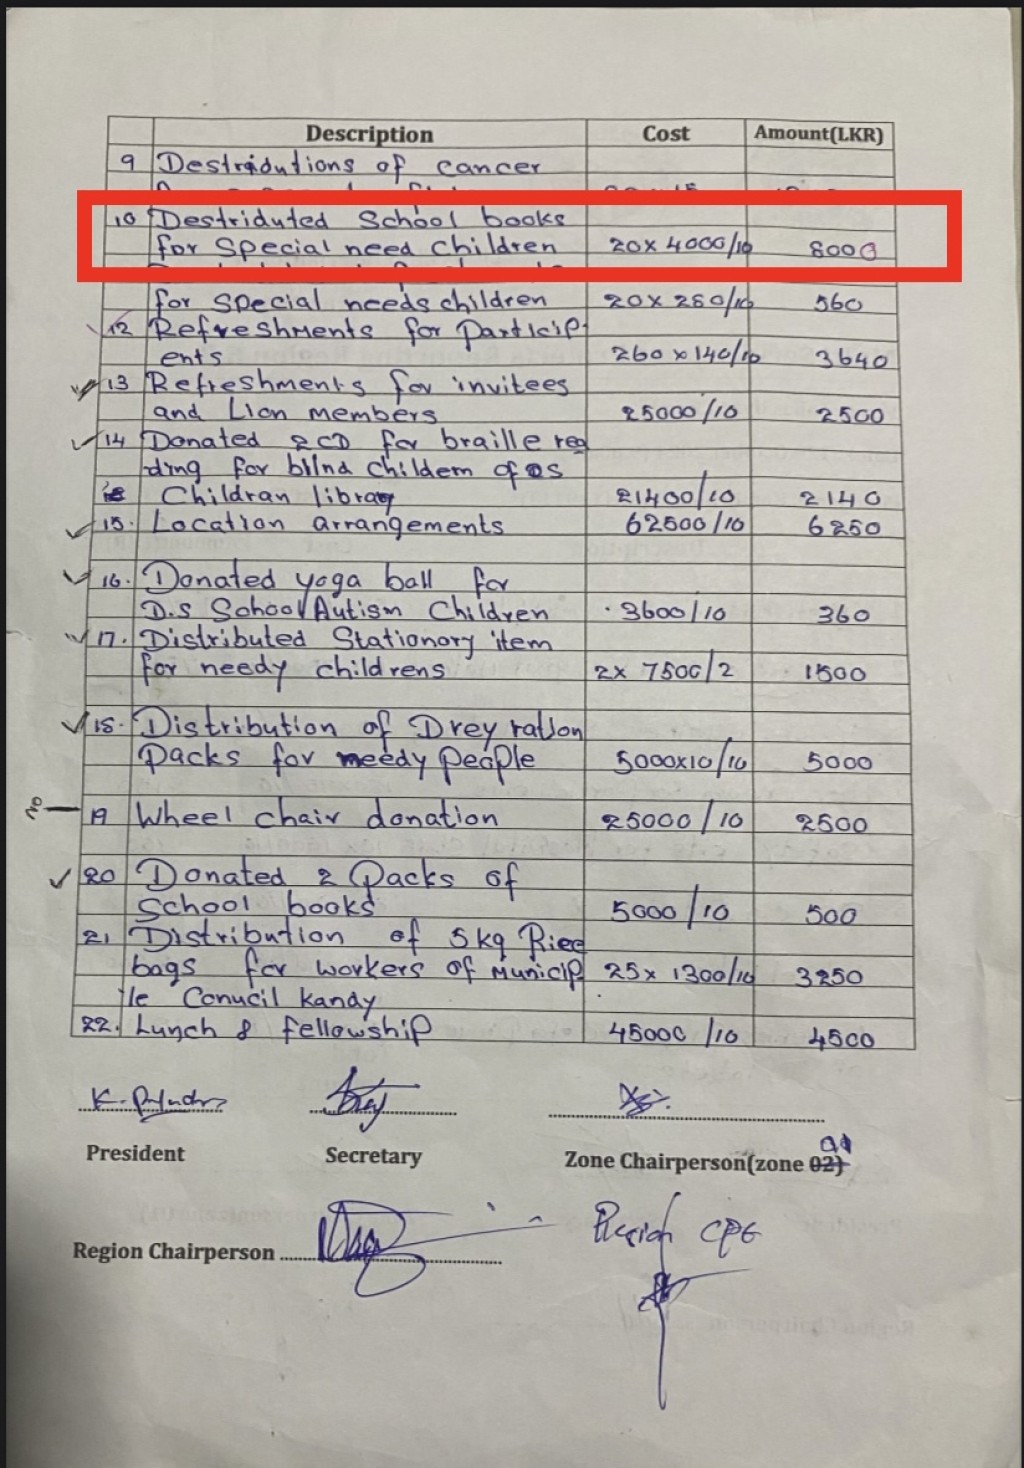 Description Cost Amount(LKR)
9 Destridutions of cancer
10 Destriduted School books
for Special need Children 20x 4000/10 8000
for special needs children 20x 280/10 560
12 Refreshments for Particip-
ents 260 x 140/10 3640
13 Refreshments for invitees
and Lion members 25000/10 2500
14 Donated 2CD for braille rea
ding for blind childem of DS
Childran library 21400/10 2140
15. Location arrangements 62500/10 6250
16. Donated yoga ball for
D.S School/Autism Children 3600/10 360
17. Distributed Stationory item
for needy childrens 2x 7500/2 1500
18. Distribution of Drey ration
Packs for needy people 5000x10/10 5000
no 19 Wheel chair donation 25000/10 2500
20 Donated 2 Packs of
School books 5000/10 500
21 Distribution of 5kg Rice
bags for workers of Municip 25x 1300/10 3250
le Conucil kandy
22. Lunch & fellowship 45000/10 4500
President Secretary Zone Chairperson(zone 02)
Region Chairperson Region CPG